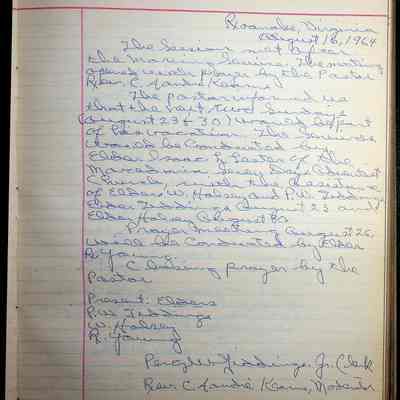 Roanoke, Virginia
August 16, 1964
The Session met after
the Morning Service. The meeting
opened with prayer by the Pastor
Rev. C. Kearns
The pastor informed us
that the next two Sundays
(August 23 & 30) would be part
of his vacation. The Services
would be Conducted by
Elder Isaac L. Lester of the
Macedonia Seven Day Adventist
Church, with the assistance
of Elders, W. Halsey and P.W. Giddings
Elder Giddings August 23 and
Elder Halsey August 30
Prayer meeting August 26,
will be Conducted by Elder
R. Young.
Closing prayer by the
Pastor
Present: Elders
P.W. Giddings
W. Halsey
R. Young
Giddings, Jr. Clerk
Rev. C. Kearns, Moderator